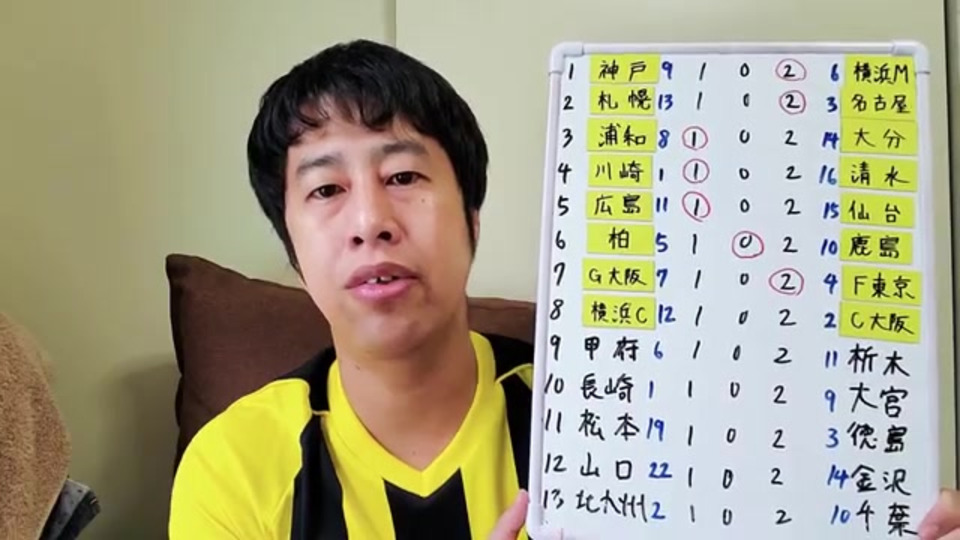 1 神戸 9 1 0 2 6 横浜M
2 札幌 13 1 0 2 3 名古屋
3 浦和 8 1 0 2 14 大分
4 川崎 1 1 0 2 16 清水
5 広島 11 1 0 2 15 仙台
6 柏 5 1 0 2 10 鹿島
7 G大阪 7 1 0 2 4 F東京
8 横浜C 12 1 0 2 2 C大阪
9 甲府 6 1 0 2 11 栃木
10 長崎 1 1 0 2 9 大宮
11 松本 19 1 0 2 3 徳島
12 山口 22 1 0 2 14 金沢
13 北九州 2 1 0 2 10 千葉